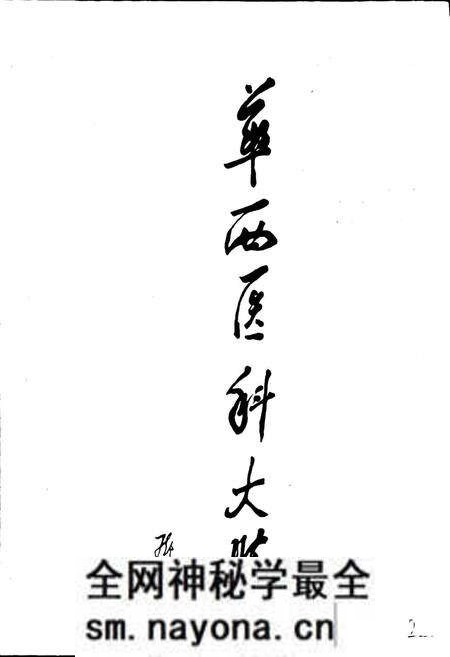 華西医科大
全网神秘学最全
sm.nayona.cn